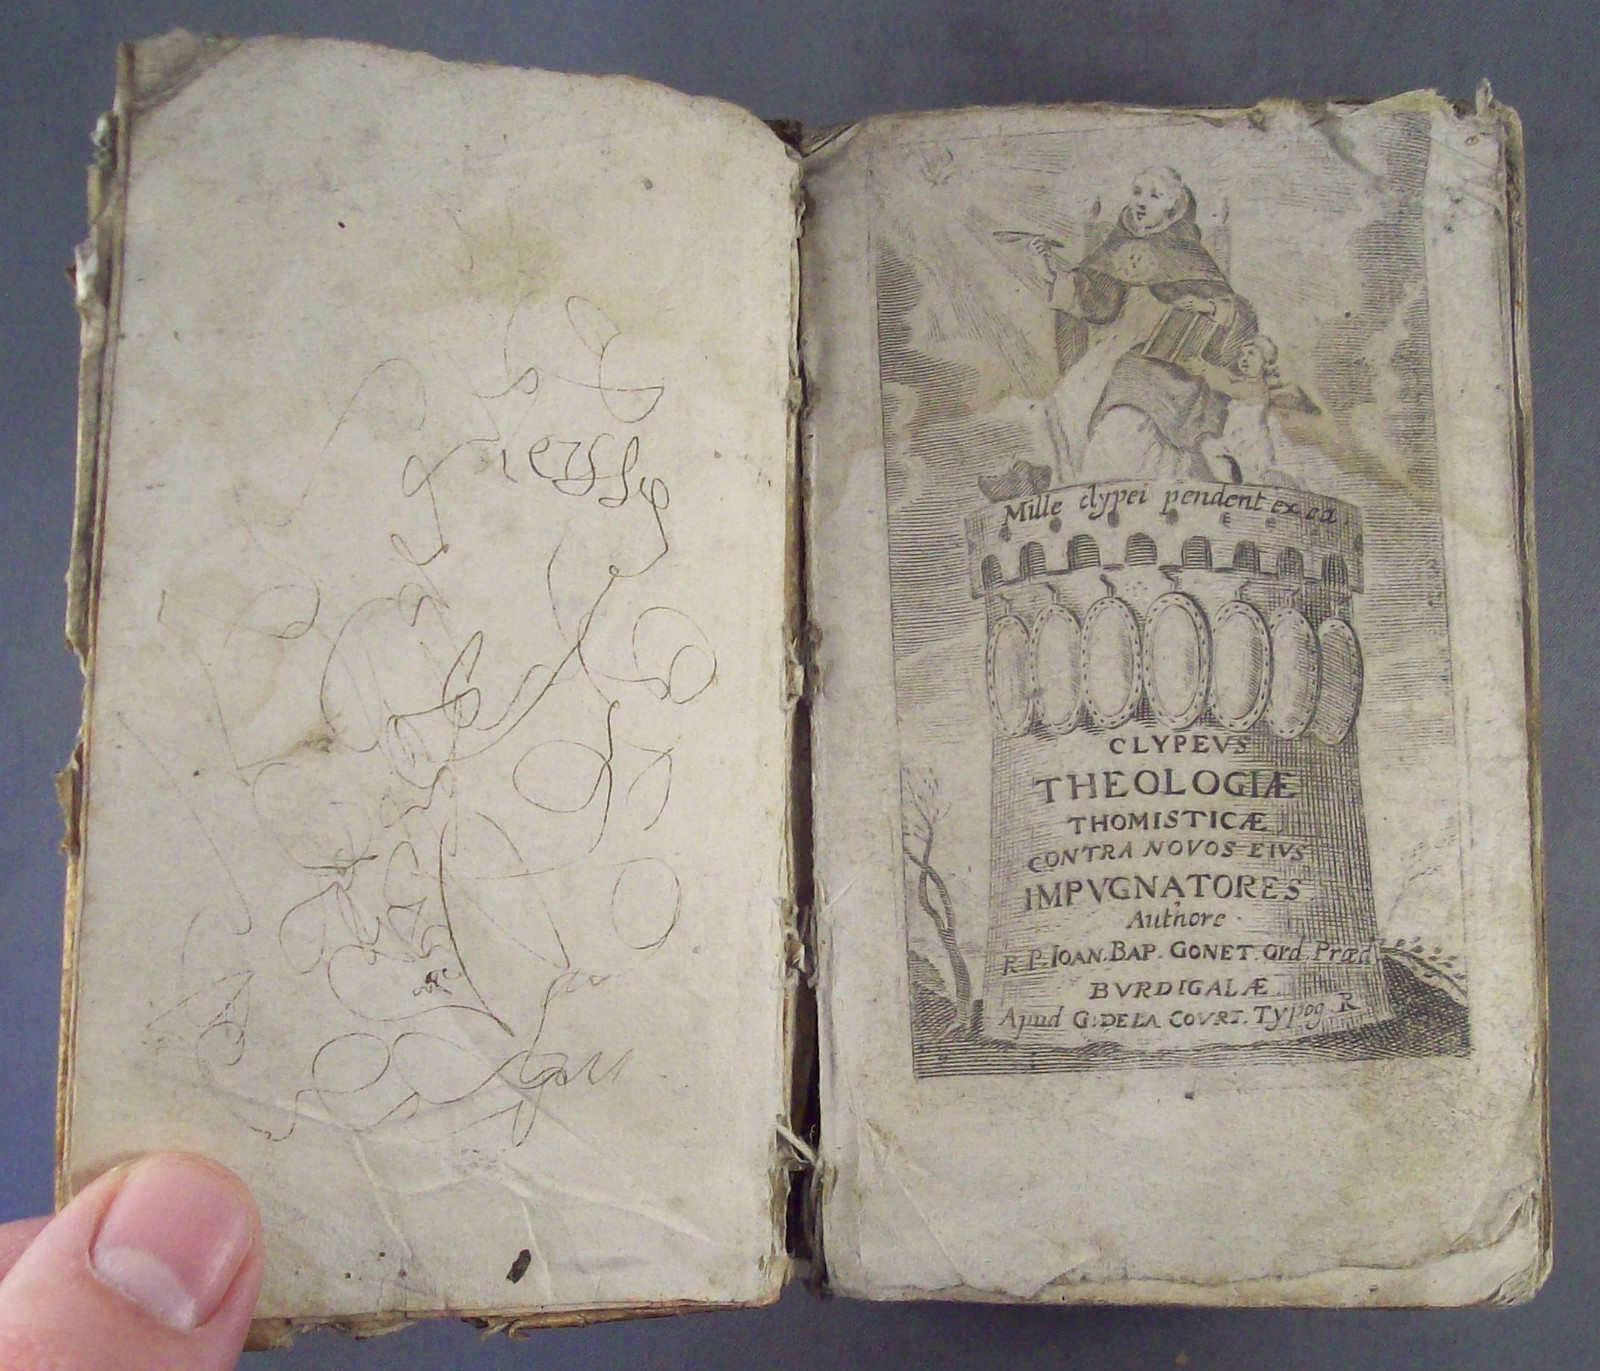 Mille clypei pendent ex ea.
CLYPEVS
THEOLOGIÆ
THOMISTICÆ
CONTRA NOVOS EIVS
IMPVGNATORES.
Authore
R. P. IOAN. BAP. GONET. Ord. Præd.
BVRDIGALÆ
Apud G. DE LA COVRT. Typog. R